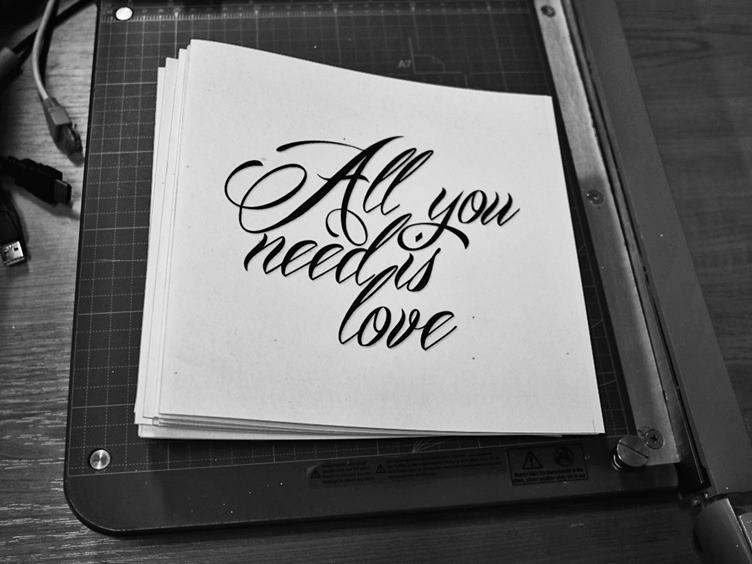 A7
All you
need is
love